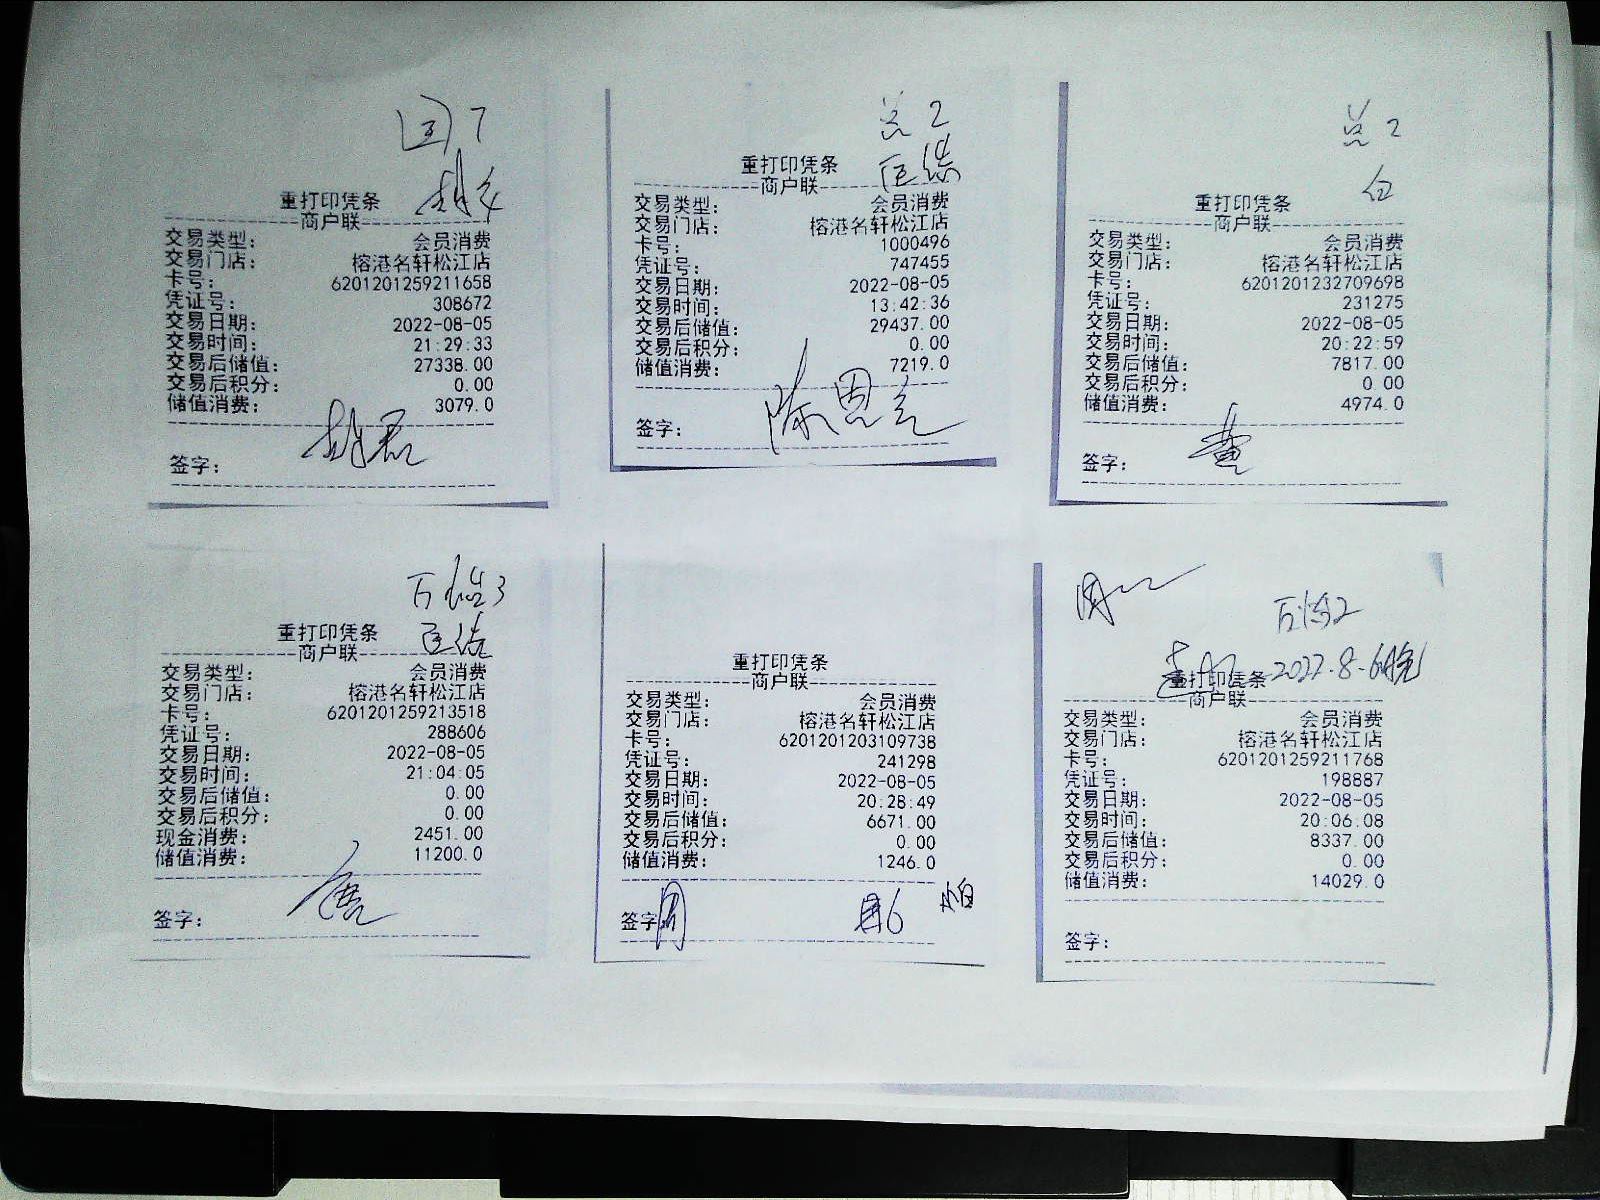 7
重打印凭条
商户联
交易类型： 会员消费
交易门店： 榕港名轩松江店
卡号： 6201201259211658
凭证号： 308672
交易日期： 2022-08-05
交易时间： 21:29:33
交易后储值： 27338.00
交易后积分： 0.00
储值消费： 3079.0
签字：
总2
重打印凭条
商户联
交易类型： 会员消费
交易门店： 榕港名轩松江店
卡号： 1000496
凭证号： 747455
交易日期： 2022-08-05
交易时间： 13:42:36
交易后储值： 29437.00
交易后积分： 0.00
储值消费： 7219.0
签字：
总2
重打印凭条
商户联
交易类型： 会员消费
交易门店： 榕港名轩松江店
卡号： 6201201232709698
凭证号： 231275
交易日期： 2022-08-05
交易时间： 20:22:59
交易后储值： 7817.00
交易后积分： 0.00
储值消费： 4974.0
签字：
3
重打印凭条
商户联
交易类型： 会员消费
交易门店： 榕港名轩松江店
卡号： 6201201259213518
凭证号： 288606
交易日期： 2022-08-05
交易时间： 21:04:05
交易后储值： 0.00
交易后积分： 0.00
现金消费： 2451.00
储值消费： 11200.0
签字：
重打印凭条
商户联
交易类型： 会员消费
交易门店： 榕港名轩松江店
卡号： 6201201203109738
凭证号： 241298
交易日期： 2022-08-05
交易时间： 20:28:49
交易后储值： 6671.00
交易后积分： 0.00
储值消费： 1246.0
签字 周
2
2022.8.6
重打印凭条
商户联
交易类型： 会员消费
交易门店： 榕港名轩松江店
卡号： 6201201259211768
凭证号： 198887
交易日期： 2022-08-05
交易时间： 20:06:08
交易后储值： 8337.00
交易后积分： 0.00
储值消费： 14029.0
签字：